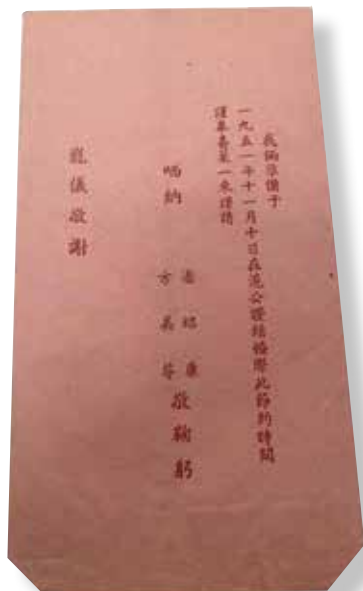 我倆準備于
一九五一年十一月十日在公證結婚際此節約時間
謹奉喜一束謹請
哂納
康
方美芬
敬鞠躬
寵儀敬謝